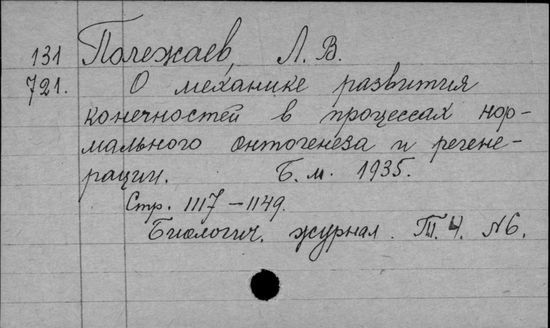 131 Полежаев, Л. В.
721. О механике развития
конечностей в процессах нор-
мального онтогенеза и регене-
рации. Б. м. 1935.
Стр. 1117-1149.
Биологич. журнал. Т. 4. №6.